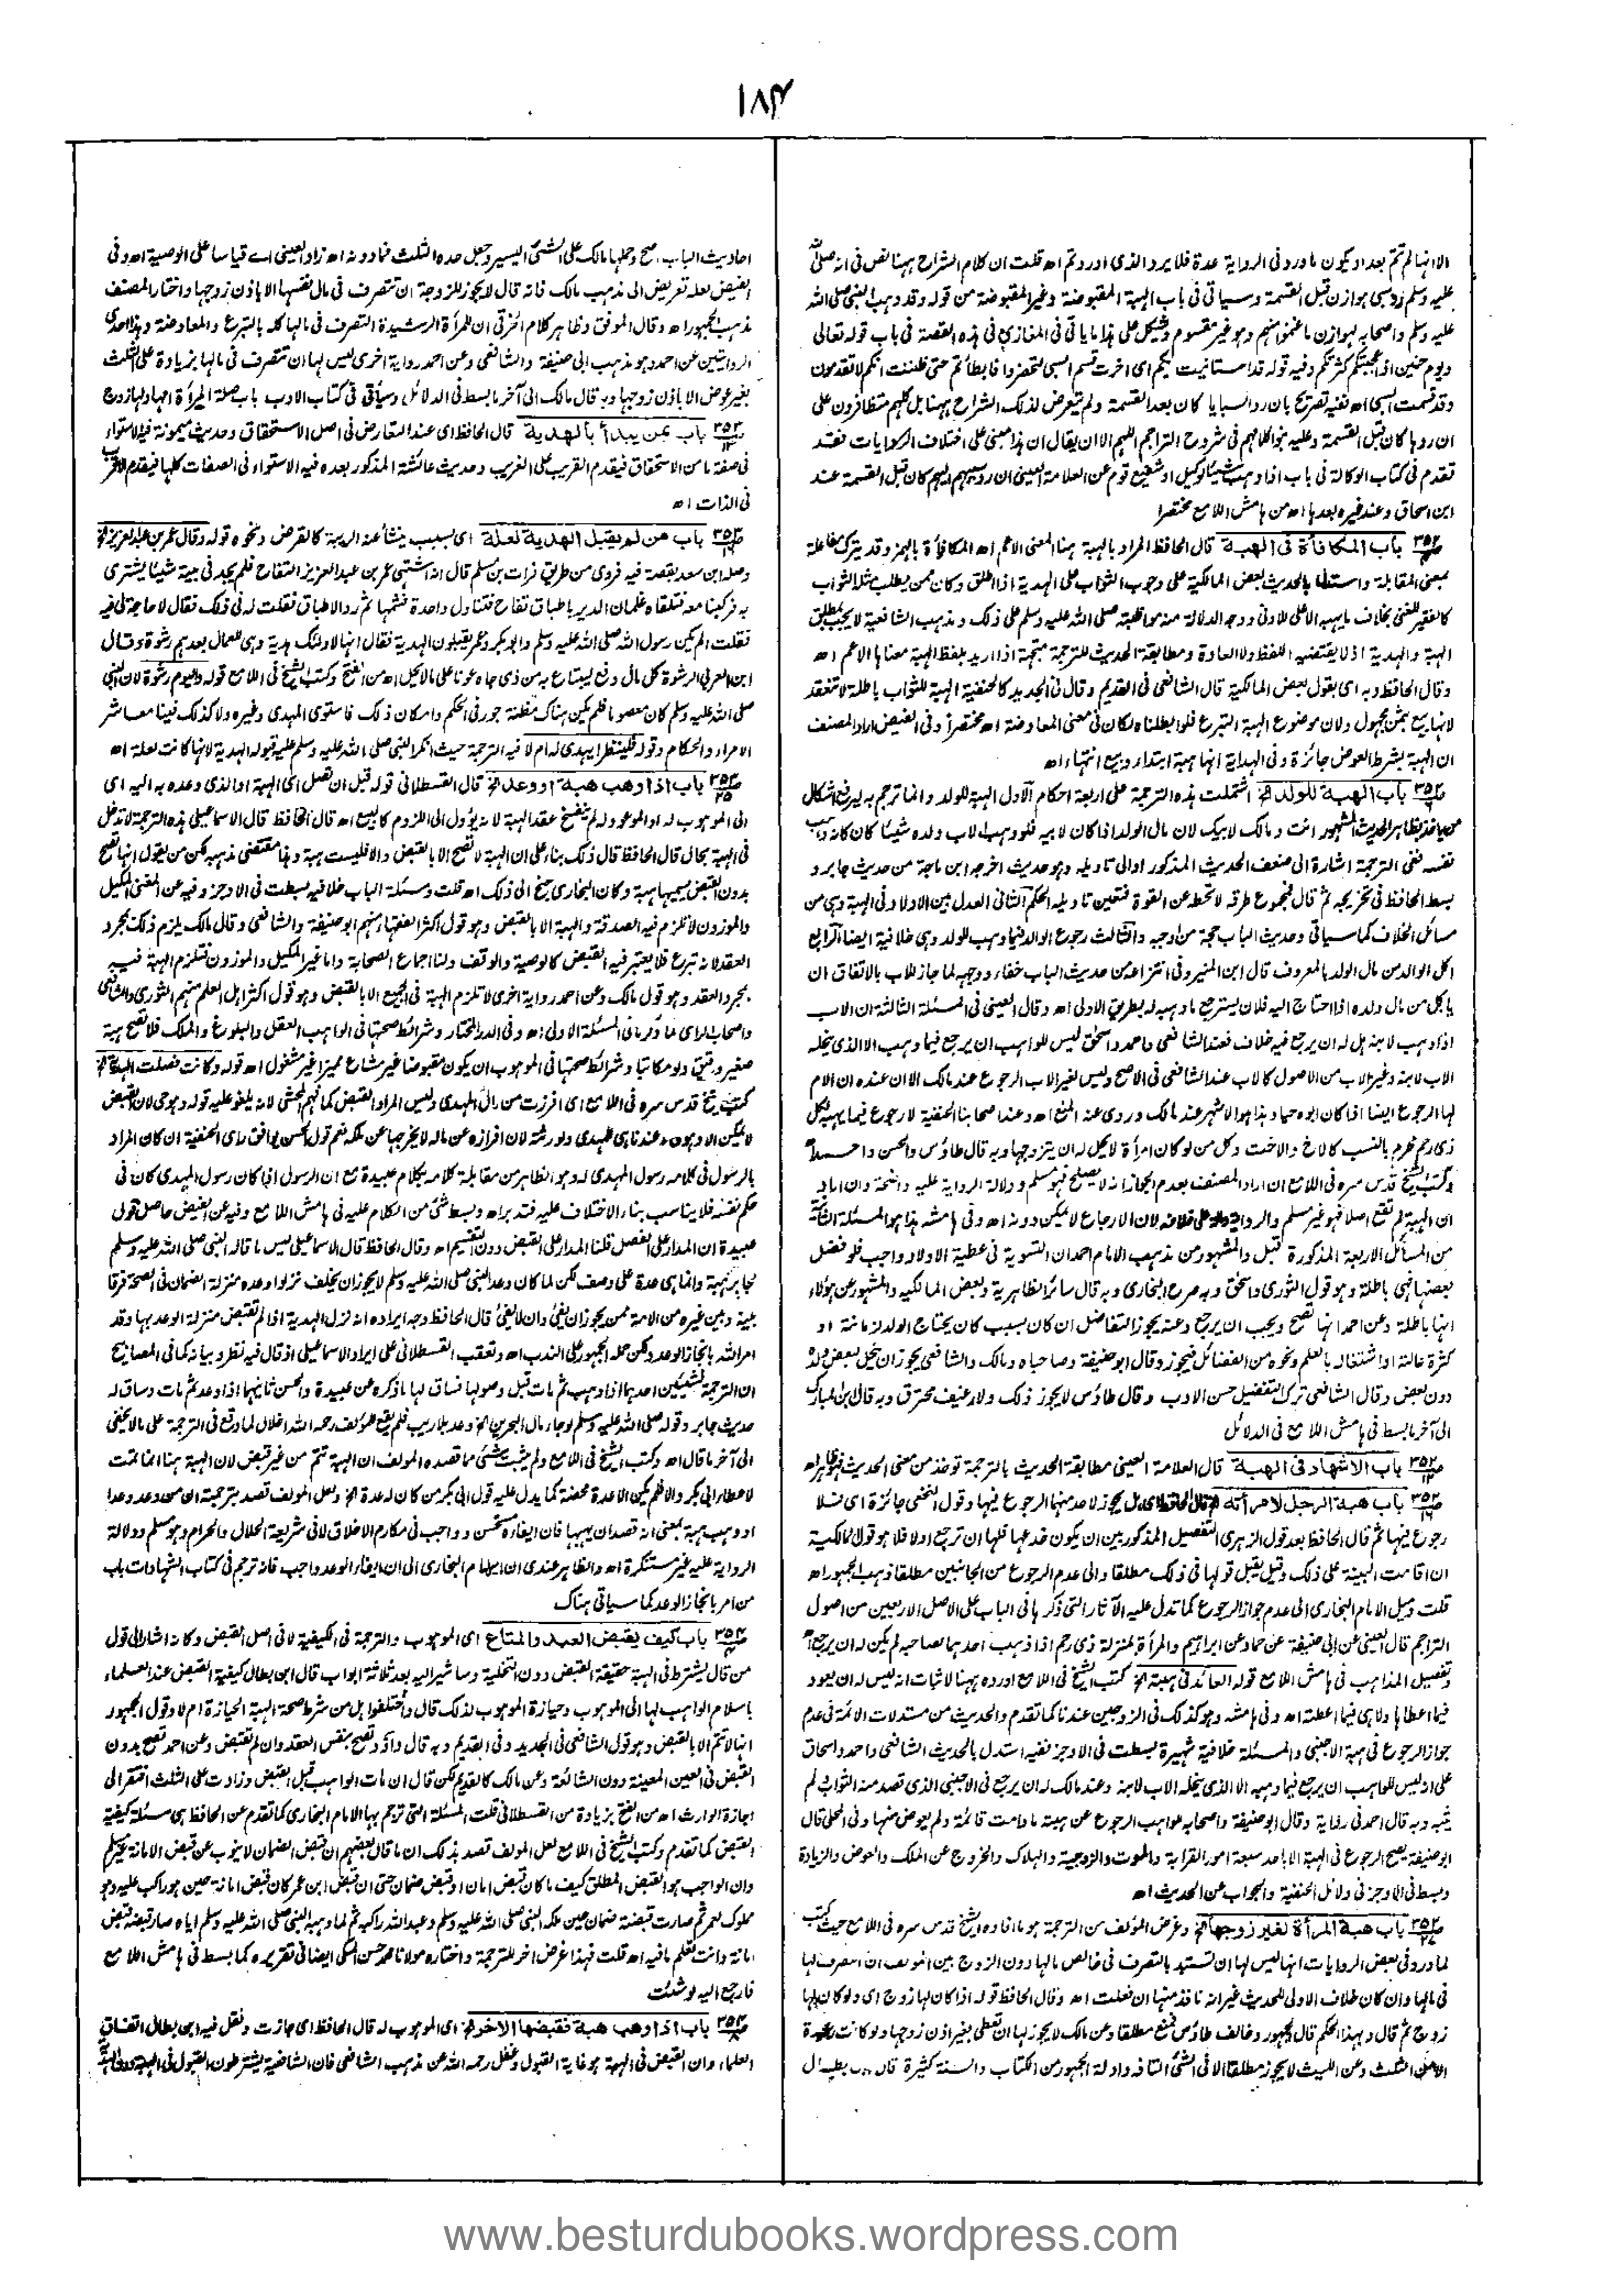 ١٨٤
الا انها لم تتم بعد او يكون ما ورد فى الرواية عدة فلا يرد الذى اوردتم اھ قلت ان كلام الشراح ههنا نص فى انه صلى الله
عليه وسلم رد سبى هوازن قبل القسمة وسياتى فى باب الهبة المقبوضة وغير المقبوضة من قوله وقد وهب النبى صلى الله
عليه وسلم واصحابه لهوازن ما غنموا منهم وهو غير مقسوم ويشكل على هذا ما ياتى فى المغازى فى هذه القصة فى باب قوله تعالى
ويوم حنين اذ اعجبتكم كثرتكم وفيه قوله قد استانيت بكم اى اخرت قسم السبى لتحضروا فابطأتم حتى ظننت انكم لا تقدمون
وقد قسمت السبى اھ ففيه تصريح بان رد السبايا كان بعد القسمة ولم يتعرض لذلك الشراح ههنا بل كلهم متظافرون على
ان ردها كان قبل القسمة وعليه بنوا كلامهم فى شروح التراجم اللهم الا ان يقال ان هذا مبنى على اختلاف الروايات فقد
تقدم فى كتاب الوكالة فى باب اذا وهب شيئا لوكيل او شفيع قوم عن العلامة العينى ان رد سبيهم اليهم كان قبل القسمة عند
ابن اسحاق وعند غيره بعدها اھ من هامش اللامع مختصرا
باب المكافأة فى الهبة قال الحافظ المراد بالهبة هنا المعنى الاعم اھ المكافأة بالهمز وقد يترك مفاعلة
بمعنى المقابلة واستدل بالحديث بعض المالكية على وجوب الثواب على الهدية اذا اطلق وكان ممن يطلب مثله الثواب
كالفقير للغنى بخلاف ما يهبه الاعلى للادنى ووجه الدلالة منه مواظبته صلى الله عليه وسلم على ذلك ومذهب الشافعية لا يجب بمطلق
الهبة والهدية اذ لا يقتضيه اللفظ ولا العادة ومطابقة الحديث للترجمة متجهة اذا اريد بلفظ الهبة معناها الاعم اھ
وقال الحافظ وبه اى بقول بعض المالكية قال الشافعى فى القديم وقال فى الجديد كالحنفية الهبة للثواب باطلة لا تنعقد
لانها بيع بثمن مجهول ولان موضوع الهبة التبرع فلو ابطلناه لكان فى معنى المعاوضة اھ مختصرا وفى الفيض اراد المصنف
ان الهبة بشرط العوض جائزة وفى الهداية انها هبة ابتداء وبيع انتهاء اھ
باب الهبة للولد الخ اشتملت هذه الترجمة على اربعة احكام الاول الهبة للولد وانما ترجم به ليرفع اشكال
من ياخذ بظاهر الحديث المشهور انت ومالك لابيك لان مال الولد اذا كان لابيه فلو وهب الاب ولده شيئا كان كانه وهب
نفسه ففى الترجمة اشارة الى ضعف الحديث المذكور او الى تاويله وهو حديث اخرجه ابن ماجة من حديث جابر و
بسط الحافظ فى تخريجه ثم قال فمجموع طرقه لا تحطه عن القوة فتعين تاويله الحكم الثانى العدل بين الاولاد فى الهبة وهى من
مسائل الخلاف كما سياتى وحديث الباب حجة من اوجبه والثالث رجوع الوالد فيما وهب للولد وهى خلافية ايضا الرابع
اكل الوالد من مال الولد بالمعروف قال ابن المنير وفى انتزاعه من حديث الباب خفاء ووجهه لما جاز للاب بالاتفاق ان
ياكل من مال ولده اذا احتاج اليه فلان يسترجع ما وهبه له بطريق الاولى اھ وقال العينى فى المسئلة الثالثة ان الاب
اذا وهب لابنه هل له ان يرجع فيه خلاف فعند الشافعى واحمد واسحق ليس للواهب ان يرجع فيما وهب الا الذى ينحله
الاب لابنه وغير الاب من الاصول كالاب عند الشافعى فى الاصح وليس لغير الاب الرجوع عند مالك الا ان عنده ان الام
لها الرجوع ايضا اذا كان ابوه حيا وهذا هو الاشهر عند مالك وروى عنه المنع اھ وعند اصحابنا الحنفية لا رجوع فيما يهبه لكل
ذى رحم محرم بالنسب كالاخ والاخت وكل من لو كان امرأة لا يحل له ان يتزوجها وبه قال طاؤس والحسن واحمد اھ
وكتب الشيخ قدس سره فى اللامع ان اراد المصنف بعدم الجواز انه لا يصلح فهو مسلم ودلالة الرواية عليه واضحة وان اراد
ان الهبة لم تقع اصلا فهو غير مسلم والرواية دالة على خلافه لان الارجاع لا يمكن دونه اھ وفى هامشه هذا هو المسئلة الثانية
من المسائل الاربعة المذكورة قبل والمشهور من مذهب الامام احمد ان التسوية فى عطية الاولاد واجب فلو فضل
بعضها فهى باطلة وهو قول الثورى واسحق وبه صرح البخارى وبه قال سائر الظاهرية وبعض المالكيه والمشهور عن هؤلاء
انها باطلة وعن احمد انها تصح ويجب ان يرجع وعنه يجوز التفاضل ان كان بسبب كان يحتاج الولد لزمانته او
كثرة عائلته او اشتغاله بالعلم ونحوه من الفضائل فيجوز وقال ابو حنيفة وصاحباه ومالك والشافعى يجوز ان ينحل بعض ولده
دون بعض وقال الشافعى ترك التفضيل حسن الادب وقال طاؤس لا يجوز ذلك ولا رغيف محترق وبه قال ابن المبارك
الى آخر ما بسط فى هامش اللامع فى الدلائل
باب الاشهاد فى الهبة قال العلامة العينى مطابقة الحديث بالترجمة توخذ من معنى الحديث فهو ظاهر اھ
باب هبة الرجل لامرأته الخ قال الحافظ اى هل يجوز لاحد منهما الرجوع فيها وقول النخعى جائزة اى فلا
رجوع فيها ثم قال الحافظ بعد قول الزهرى التفصيل المذكور بين ان يكون خدعها فلها ان ترجع او لا فلا هو قول المالكية
ان اقامت البينة على ذلك وقيل يقبل قولها فى ذلك مطلقا والى عدم الرجوع من الجانبين مطلقا ذهب الجمهور اھ
قلت وميل الامام البخارى الى عدم جواز الرجوع كما تدل عليه الآثار التى ذكرها فى الباب على الاصل الاربعين من اصول
التراجم قال العينى عن ابى حنيفة عن حماد عن ابراهيم والمرأة بمنزلة ذى رحم اذا وهب احدهما لصاحبه لم يكن له ان يرجع اھ
وتفصيل المذاهب فى هامش اللامع قوله العائد فى هبته الخ كتب الشيخ فى اللامع اورده ههنا لاثبات انه ليس له ان يعود
فيما اعطاها ولا هى فيما اعطته اھ وفى هامشه وهو كذلك فى الزوجين عندنا كما تقدم والحديث من مستدلات الائمة فى عدم
جواز الرجوع فى هبة الاجنبى والمسئلة خلافية شهيرة بسطت فى الاوجز ففيه استدل بالحديث الشافعى واحمد واسحاق
على انه ليس للواهب ان يرجع فيما وهبه الا الذى ينحله الاب لابنه وعند مالك له ان يرجع فى الاجنبى الذى قصد منه الثواب لم
يثبه وبه قال احمد فى رواية وقال ابو حنيفة واصحابه للواهب الرجوع عن هبته ما دامت قائمة ولم يعوض منها وفى المحلى قال
ابو حنيفة يصح الرجوع فى الهبة الا باحد سبعة امور القرابة والموت والزوجية والهلاك والخروج عن الملك والعوض والزيادة
وبسط فى الاوجز فى دلائل الحنفية والجواب عن الحديث اھ
باب هبة المرأة لغير زوجها الخ وغرض المؤلف من الترجمة هو ما افاده الشيخ قدس سره فى اللامع حيث كتب
لما ورد فى بعض الروايات انها ليس لها ان تستبد بالتصرف فى خالص مالها دون الزوج بين المولف ان تصرف لها
فى مالها وان كان خلاف الاولى للحديث غير انه نافذ منها ان فعلت اھ وقال الحافظ قوله اذا كان لها زوج اى ولو كان لها
زوج ثم قال وبهذا الحكم قال الجمهور وخالف طاؤس فمنع مطلقا وعن مالك لا يجوز لها ان تعطى بغير اذن زوجها ولو كانت رشيدة
الا من الثلث وعن الليث لا يجوز مطلقا الا فى الشئ التافه وادلة الجمهور من الكتاب والسنة كثيرة قال ابن بطال
احاديث الباب اصح وحملها مالك على الشئ اليسير وجعل حده الثلث فما دونه اھ زاد العينى اے قياسا على الوصية اھ وفى
الفيض لعله تعريض الى مذهب مالك فانه قال لا يجوز للزوجة ان تتصرف فى مال نفسها الا باذن زوجها واختار المصنف
مذهب الجمهور اھ وقال الموفق وظاهر كلام الخرقى ان للمرأة الرشيدة التصرف فى مالها كله بالتبرع والمعاوضة وهذا احدى
الروايتين عن احمد وهو مذهب ابى حنيفة والشافعى وعن احمد رواية اخرى ليس لها ان تتصرف فى مالها بزيادة على الثلث
بغير عوض الا باذن زوجها وبه قال مالك الى آخر ما بسط فى الدلائل وسياتى فى كتاب الادب باب صلة المرأة امها ولها زوج
باب بمن يبدأ بالهدية قال الحافظ اى عند التعارض فى اصل الاستحقاق وحديث ميمونة فيه الاستواء
فى صفة ما من الاستحقاق فيقدم القريب على الغريب وحديث عائشة المذكور بعده فيه الاستواء فى الصفات كلها فيقدم الاقرب
فى الذات اھ
باب من لم يقبل الهدية لعلة اى بسبب ينشأ عنه الريبة كالقرض ونحوه قوله وقال عمر بن عبد العزيز الخ
وصله ابن سعد بقصة فيه فروى من طريق فرات بن مسلم قال انه اشتهى عمر بن عبد العزيز التفاح فلم يجد فى بيته شيئا يشترى
به فركبنا معه فتلقاه غلمان الدير باطباق تفاح فتناول واحدة فشمها ثم رد الاطباق فقلت له فى ذلك فقال لا حاجة لى فيه
فقلت الم يكن رسول الله صلى الله عليه وسلم وابو بكر وعمر يقبلون الهدية فقال انها لاولئك هدية وهى للعمال بعدهم رشوة وقال
ابن العربى الرشوة كل مال دفع ليبتاع به من ذى جاه عونا على ما لا يحل اھ من الفتح وكتب الشيخ فى اللامع قوله واليوم رشوة لان النبى
صلى الله عليه وسلم كان معصوما فلم يكن هناك مظنة جور فى الحكم وامكان ذلك فاستوى المهدى وغيره ولا كذلك فينا معاشر
الامراء والحكام وقوله فلينظر ايهدى له ام لا فيه الترجمة حيث انكر النبى صلى الله عليه وسلم عليه قبوله الهدية لانها كانت لعلة اھ
باب اذا وهب هبة او وعد الخ قال القسطلانى قوله قبل ان تصل اى الهبة او الذى وعده به اليه اى
الى الموهوب له او الموعود له لم ينفسخ عقد الهبة لانه يؤول الى اللزوم كالبيع اھ قال الحافظ قال الاسماعيلى هذه الترجمة لا تدخل
فى الهبة بحال قال الحافظ قال ذلك بناء على ان الهبة لا تصح الا بالقبض والا فليست هبة وهذا مقتضى مذهبه لكن من يقول انها تصح
بدون القبض يسميها هبة وكان البخارى جنح الى ذلك اھ قلت ومسئلة الباب خلافيه بسطت فى الاوجز وفيه عن المغنى المكيل
والموزون لا تلزم فيه الصدقة والهبة الا بالقبض وهو قول اكثر الفقهاء منهم ابو حنيفة والشافعى وقال مالك يلزم ذلك بمجرد
العقد لانه تبرع فلا يعتبر فيه القبض كالوصية والوقف ولنا اجماع الصحابة واما غير المكيل والموزون فتلزم الهبة فيه
بمجرد العقد وهو قول مالك وعن احمد رواية اخرى لا تلزم الهبة فى الجميع الا بالقبض وهو قول اكثر اهل العلم منهم الثورى والشافعى
واصحاب الراى لما ذكرنا فى المسئلة الاولى اھ وفى الدر المختار وشرائط صحتها فى الواهب العقل والبلوغ والملك فلا تصح هبة
صغير ورقيق ولو مكاتبا وشرائط صحتها فى الموهوب ان يكون مقبوضا غير مشاع مميزا غير مشغول اھ قوله وكانت فصلت الهدية الخ
كتب الشيخ قدس سره فى اللامع اى افرزت من مال المهدى وليس المراد القبض كما فهم المحشى لانه يلغو عليه قوله وهو حى لان القبض
لا يمكن الا وهو حى وعندنا هى للمهدى ولورثته لان افرازه عن ماله لا يخرجها عن ملكه نعم قول الحسن يوافق راى الحنفية ان كان المراد
بالرسول فى كلامه رسول المهدى له وهو الظاهر من مقابلة كلامه بكلام عبيدة مع ان الرسول اذا كان رسول المهدى كان فى
حكم نفسه فلا يناسب بناء الاختلاف عليه فتدبر اھ وبسط شئ من الكلام عليه فى هامش اللامع وفيه عن الفيض حاصل قول
عبيدة ان المدار على الفصل قلنا المدار على القبض دون التقسيم اھ وقال الحافظ قال الاسماعيلى ليس ما قاله النبى صلى الله عليه وسلم
لجابر هبة وانما هى عدة على وصف لكن لما كان وعد النبى صلى الله عليه وسلم لا يجوز ان يخلف نزلوا وعده منزلة الضمان فى الصحة فرقا
بينه وبين غيره من الامة ممن يجوز ان يفى وان لا يفى قال الحافظ وجه ايراده انه نزل الهدية اذا لم تقبض منزلة الوعد بها وقد
امر الله بانجاز الوعد ولكن حمله الجمهور على الندب اھ وتعقب القسطلانى على ايراد الاسماعيلى اذ قال فيه نظر وبيانه كما فى المصابيح
ان الترجمة لشيئين احدهما اذا وهب ثم مات قبل وصولها فساق لها ما ذكره عن عبيدة والحسن ثانيهما اذا وعد ثم مات وساق له
حديث جابر وقوله صلى الله عليه وسلم لو جاء مال البحرين الخ وعد بلا ريب فلم يقع للمؤلف رحمه الله اخلال لما وقع فى الترجمة على ما لا يخفى
الى آخر ما قال اھ وكتب الشيخ فى اللامع ولم يثبت بشئ مما قصده المولف ان الهبة تتم من غير قبض لان الهبة هنا انما تمت
لاعطاء ابى بكر والا فلم يكن الا عدة محضة كما يدل عليه قول ابى بكر من كان له عدة الخ ولعل المولف قصد بترجمته ان من وعد وعدا
او وهب هبة بمعنى انه قصد ان يهبها فان ايفاءه مستحسن وواجب فى مكارم الاخلاق لا فى شريعة الحلال والحرام وهو مسلم ودلالة
الرواية عليه غير مستنكرة اھ والظاهر عندى ان ايماء الامام البخارى الى ان ايفاء الوعد واجب فانه ترجم فى كتاب الشهادات باب
من امر بانجاز الوعد كما سياتى هناك
باب كيف يقبض العبد والمتاع اى الموهوب والترجمة فى الكيفية لا فى اصل القبض وكانه اشار الى قول
من قال يشترط فى الهبة حقيقة القبض دون التخلية وسا شير اليه بعد ثلاثة ابواب قال ابن بطال كيفية القبض عند العلماء
باسلام الواهب لها الى الموهوب وحيازة الموهوب لذلك قال واختلفوا هل من شرط صحة الهبة الحيازة ام لا وقول الجمهور
انها لا تتم الا بالقبض وهو قول الشافعى فى الجديد وفى القديم وبه قال داؤد تصح بنفس العقد وان لم تقبض وعن احمد تصح بدون
القبض فى العين المعينة دون الشائعة وعن مالك كالقديم لكن قال ان مات الواهب قبل القبض وزادت على الثلث افتقر الى
اجازة الوارث اھ من الفتح بزيادة من القسطلانى قلت المسئلة التى ترجم بها الامام البخارى كما تقدم عن الحافظ هى مسئلة كيفية
القبض كما تقدم وكتب الشيخ فى اللامع لعل المولف قصد بذلك ان ما قال بعضهم ان قبض الضمان لا ينوب عن قبض الامانة غير مسلم
وان الواجب هو القبض المطلق كيف ما كان قبض امان او قبض ضمان حتى ان قبض ابن عمر كان قبض امانة حين هو راكب عليه وهو
مملوك لعمر ثم صارت قبضته ضمان حين ملكه النبى صلى الله عليه وسلم وعبد الله راكبه ثم لما وهبه النبى صلى الله عليه وسلم اياه صار قبضه قبض
امانة وانت تعلم ما فيه اھ قلت فهذا غرض اخر للترجمة واختاره مولانا محمد حسن المكى ايضا فى تقريره كما بسط فى هامش اللامع
فارجع اليه لو شئت
باب اذا وهب هبة فقبضها الاخر الخ اى الموهوب له قال الحافظ اى جازت ونقل فيه ابن بطال اتفاق
العلماء وان القبض فى الهبة هو غاية القبول وغفل رحمه الله عن مذهب الشافعى فان الشافعية يشترطون القبول فى الهبة دون الهدية
www.besturdubooks.wordpress.com